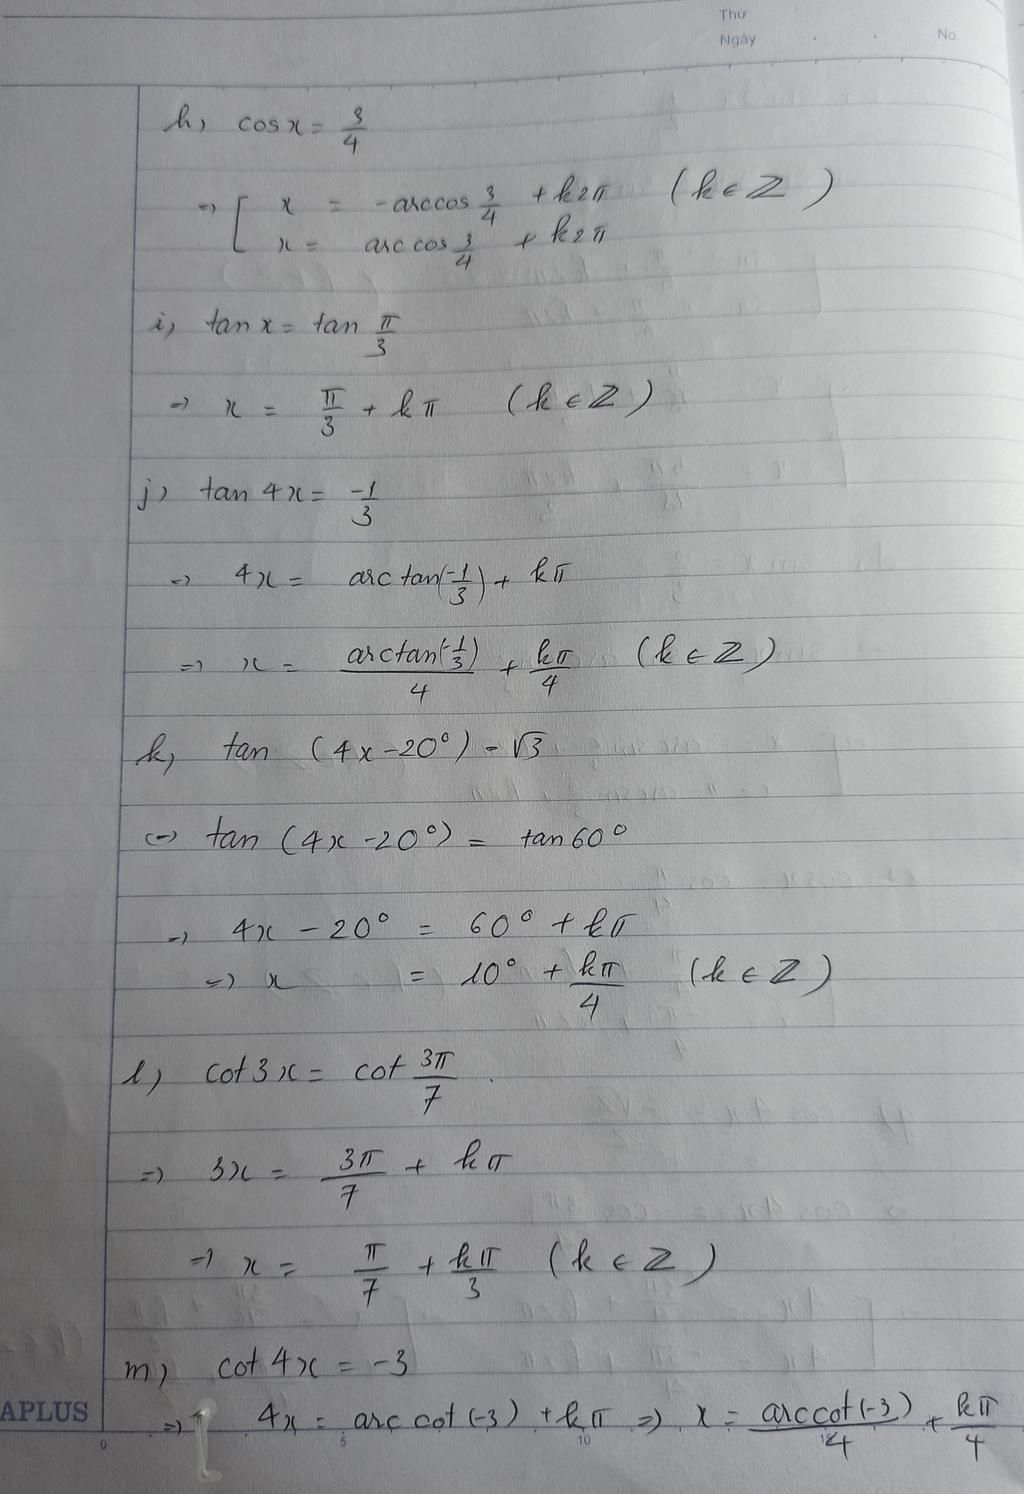 Thứ
Ngày . . No
h, cos x = 3/4
=> [ x = -arccos 3/4 + k2π (k ∈ Z)
x = arc cos 3/4 + k2π
i, tan x = tan π/3
=> x = π/3 + kπ (k ∈ Z)
j, tan 4x = -1/3
=> 4x = arc tan(-1/3) + kπ
=> x = arctan(-1/3)/4 + kπ/4 (k ∈ Z)
k, tan (4x - 20°) = √3
<=> tan (4x - 20°) = tan 60°
=> 4x - 20° = 60° + kπ
=> x = 10° + kπ/4 (k ∈ Z)
l, cot 3x = cot 3π/7 .
=> 3x = 3π/7 + kπ
=> x = π/7 + kπ/3 (k ∈ Z)
m, cot 4x = -3
=> 4x = arc cot (-3) + kπ => x = arccot(-3)/4 + kπ/4
APLUS
0 5 10